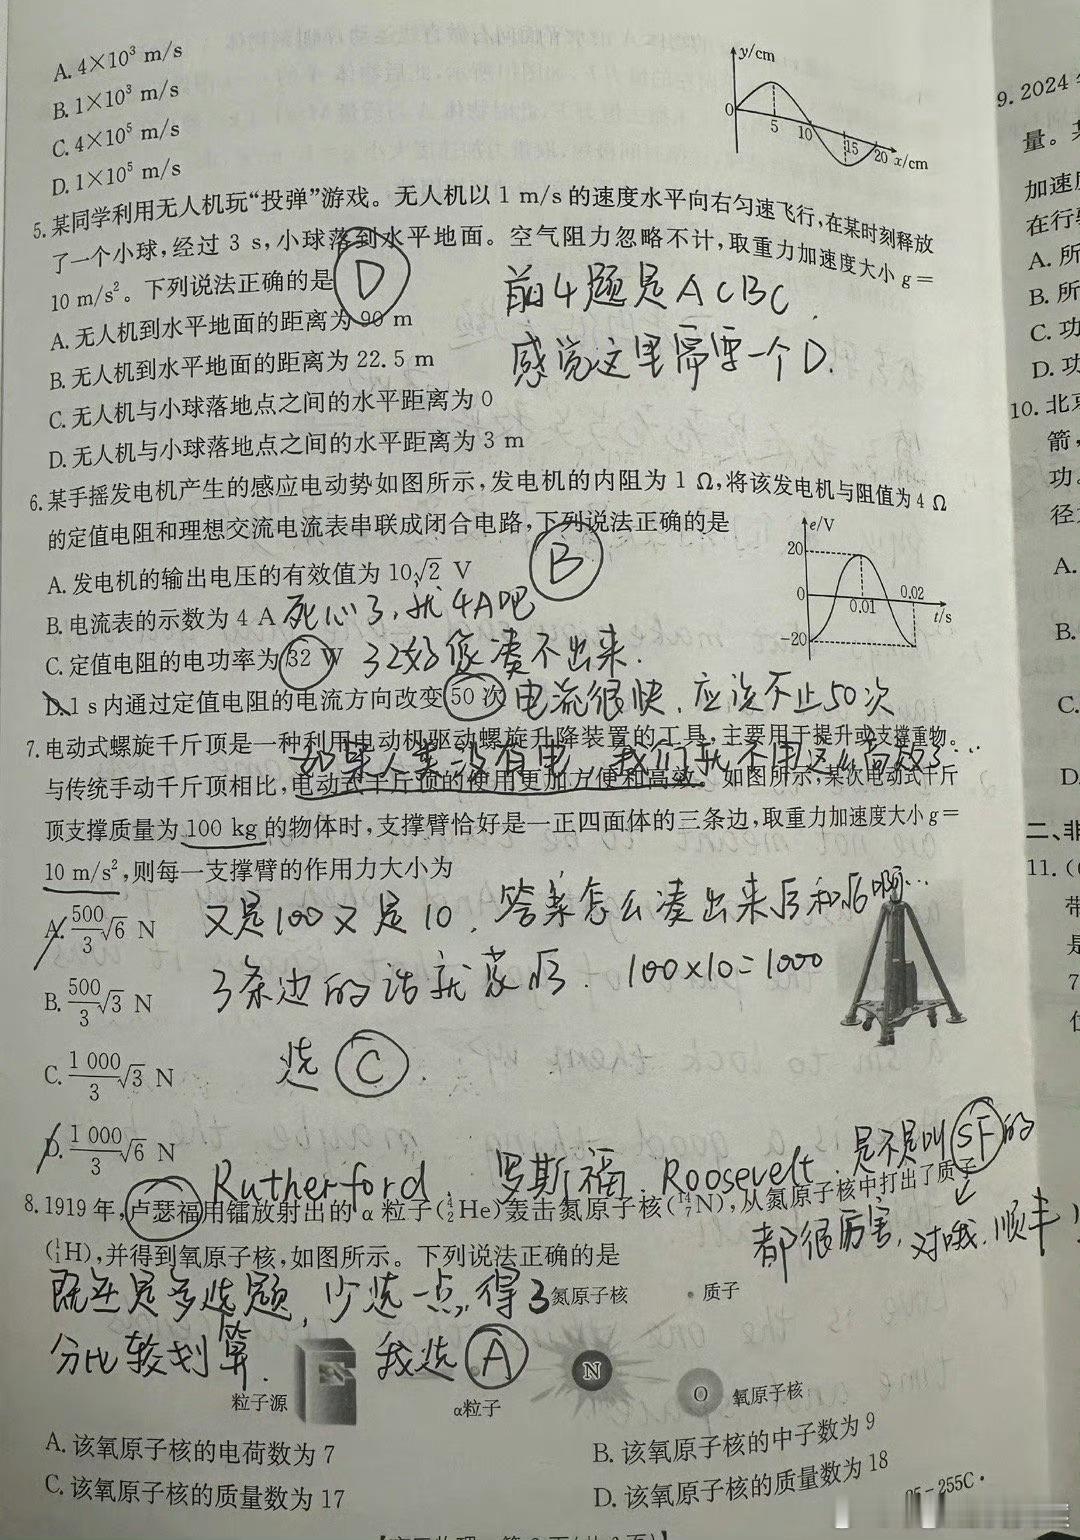 A. 4×10³ m/s
B. 1×10³ m/s
C. 4×10⁵ m/s
D. 1×10⁵ m/s
y/cm
0
5
10
15
20
x/cm
5. 某同学利用无人机玩“投弹”游戏。无人机以 1 m/s 的速度水平向右匀速飞行,在某时刻释放
了一个小球,经过 3 s,小球落到水平地面。空气阻力忽略不计,取重力加速度大小 g=
10 m/s²。下列说法正确的是
D
前4题是ACBC.
感觉这里需要一个D.
A. 无人机到水平地面的距离为 90 m
B. 无人机到水平地面的距离为 22.5 m
C. 无人机与小球落地点之间的水平距离为 0
D. 无人机与小球落地点之间的水平距离为 3 m
6. 某手摇发电机产生的感应电动势如图所示,发电机的内阻为 1 Ω,将该发电机与阻值为 4 Ω
的定值电阻和理想交流电流表串联成闭合电路,下列说法正确的是
B
e/V
20
0
-20
0.01
0.02
t/s
A. 发电机的输出电压的有效值为 10√2 V
B. 电流表的示数为 4 A
死心了,就4A吧
C. 定值电阻的电功率为 32 W
32好像凑不出来.
D. 1 s 内通过定值电阻的电流方向改变 50 次
电流很快.应该不止50次
7. 电动式螺旋千斤顶是一种利用电动机驱动螺旋升降装置的工具,主要用于提升或支撑重物。
如果人类没有电,我们就不用这么高效了…
与传统手动千斤顶相比,电动式千斤顶的使用更加方便和高效。如图所示,某次电动式千斤
顶支撑质量为 100 kg 的物体时,支撑臂恰好是一正四面体的三条边,取重力加速度大小 g=
10 m/s²,则每一支撑臂的作用力大小为
A. 500/3 √6 N
又是100又是10.答案怎么凑出来√3和√6啊…
B. 500/3 √3 N
3条边的话就蒙√3. 100×10=1000
C. 1 000/3 √3 N
选 C.
D. 1 000/3 √6 N
Rutherford 罗斯福.Roosevelt.是不是叫SF的
8. 1919 年,卢瑟福用镭放射出的 α 粒子(⁴₂He)轰击氮原子核(¹⁴₇N),从氮原子核中打出了质子
都很厉害,对哦.顺丰
(¹₁H),并得到氧原子核,如图所示。下列说法正确的是
既然是多选题,少选一点,得3
分比较划算.
我选 A
氮原子核
质子
N
O
氧原子核
粒子源
α粒子
A. 该氧原子核的电荷数为 7
B. 该氧原子核的中子数为 9
C. 该氧原子核的质量数为 17
D. 该氧原子核的质量数为 18
255C·
9. 2024
量。
加速
在行
A. 所
B. 所
C. 功
D. 功
10. 北京
箭,
功。
径
A.
B.
C.
D.
二、非
11. (
带
是
7